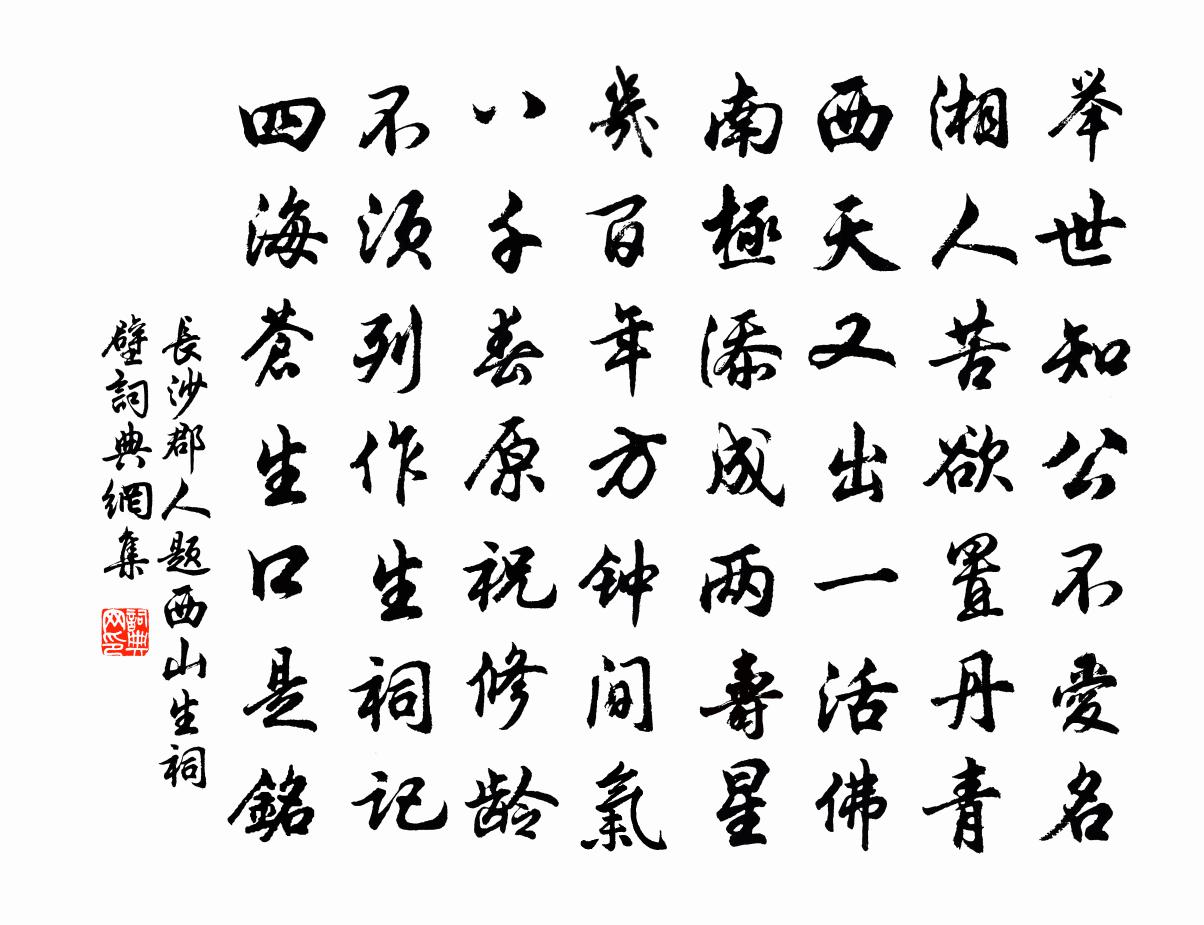 举世知公不爱名
湘人苦欲置丹青
西天又出一活佛
南極添成两壽星
幾百年方钟间氣
八千春原祝修龄
不须列作生祠记
四海蒼生口是銘
長沙郡人題西山生祠
壁詞典網集
詞典网印